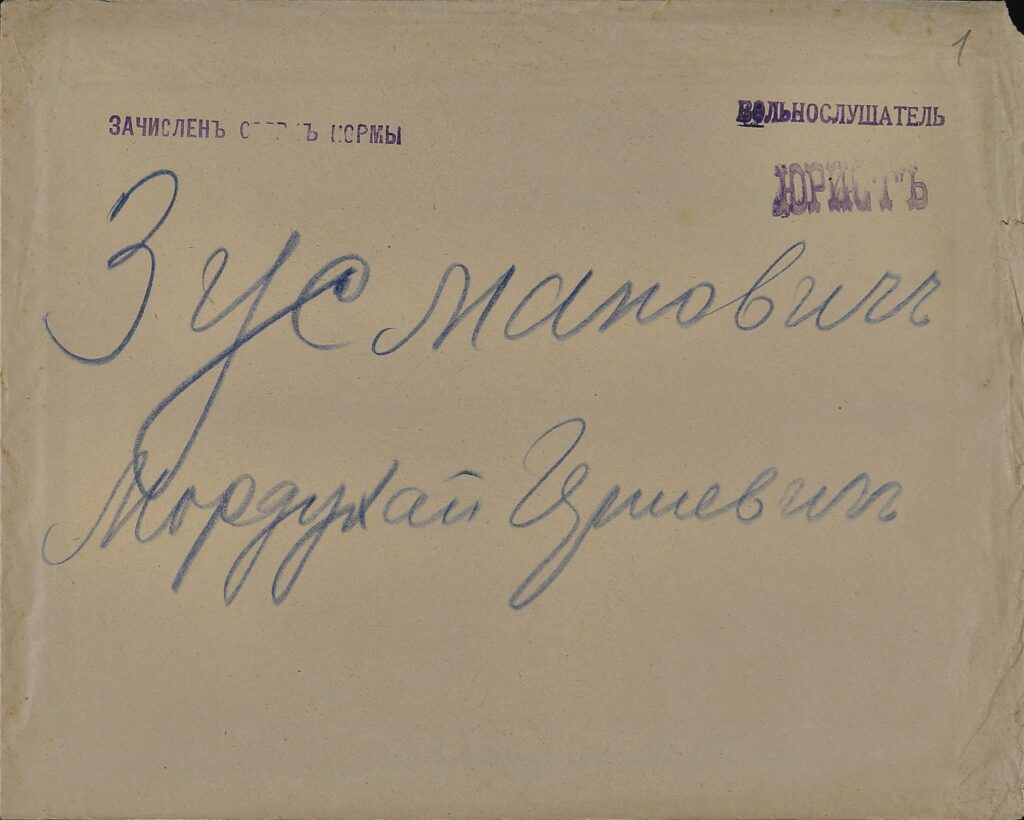 1
ЗАЧИСЛЕНЪ СВЕРХЪ НОРМЫ
ВОЛЬНОСЛУШАТЕЛЬ
ЮРИСТЪ
Зусмановичъ
Мордухай